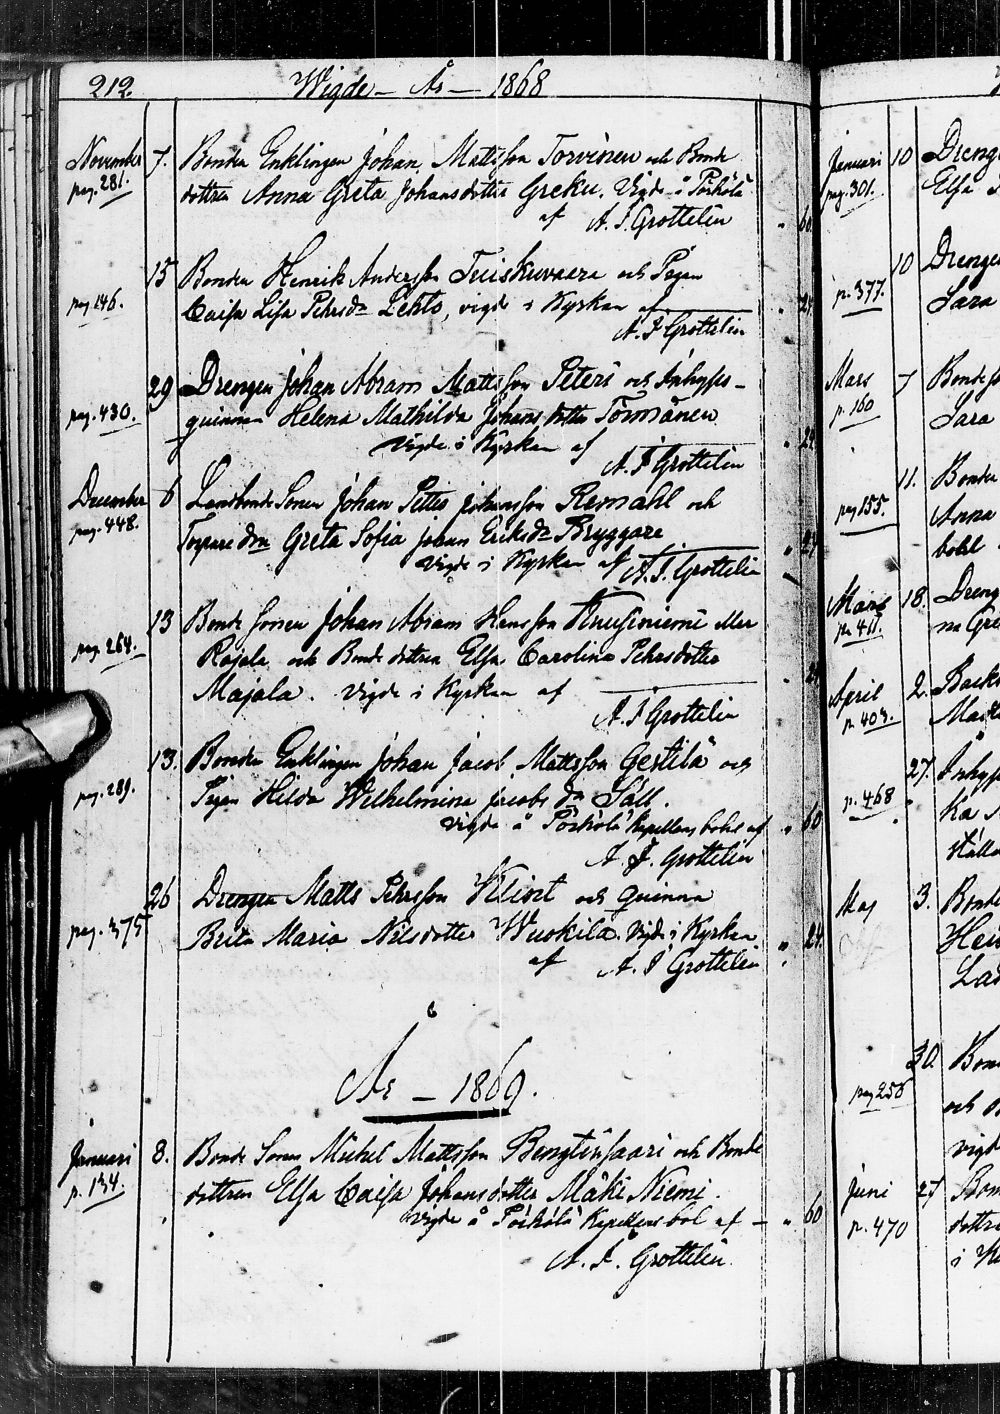 212. Wigde – År – 1868
November 7. Bonden Enklingen Johan Mattsson Torvinen och Bonde
pag. 281. dottren Anna Greta Johansdotter Greku. Vigde å Pörhölä
af A. J. Grottelin " 60
15 Bonden Henrik Andersson Tuiskuvaara och Pigan
pag 146. Caisa Lisa Pehrsdr Lehto, vigde i Kyrkan af " 24
A. J Grottelin
29 Drengen Johan Abram Mattsson Peteri och Inhyses-
pag. 430. quinnan Helena Mathilda Johansdotter Törmänen
Vigde i Kyrkan af " 24
A. J Grottelin
December 6 Landbonde Sonen Johan Petter Johansson Remahl och
pag. 448. Torpare dn Greta Sofia Johan Eriksdr Bryggare
vigde i Kyrkan af " 24
A. J. Grottelin
13 Bonde sonen Johan Abram Hansson Knusiniemi eller
pag. 264. Rajala och Bonde dottren Elsa Carolina Pehrsdotter
Majala. vigde i Kyrkan af " 24
A. J Grottelin
13. Bonden Enklingen Johan Jacob Mattsson Gestilä och
pag. 289. Pigan Hilda Wilhelmina Jacobs dr Säll.
vigde å Pörhölä Kapellansbohl af " 60
A. J. Grottelin
26 Drengen Matts Pehrsson Klint och quinnan
pag. 375 Brita Maria Nilsdotter Wuokila. Vigde i Kyrkan " 24.
af A. J Grottelin
År – 1869.
Januari 8. Bonde Sonen Michel Mattsson Bengtinsaari och Bonde
p. 134. dottren Elsa Caisa Johansdotter Mäki Niemi.
vigde å Pörhölä Kapellansbol af – " 60
A. J. Grottelin.
Januari 10 Drenge
pag. 301. Elsa
10 Drenge
p. 377. Sara
Mars 7 Bondes
p. 160 Sara
11. Bonden
pag 155. Anna
bohl
Mars 18. Dreng
p. 411. na Gre
April 2. Back
p. 403.
27. Inhys
p. 468 ka
ställ
Maj 3. Bonde
Hen
30. Bon
pag 256 och
vigd
Juni 27 Bon
p. 470 dottre
i K